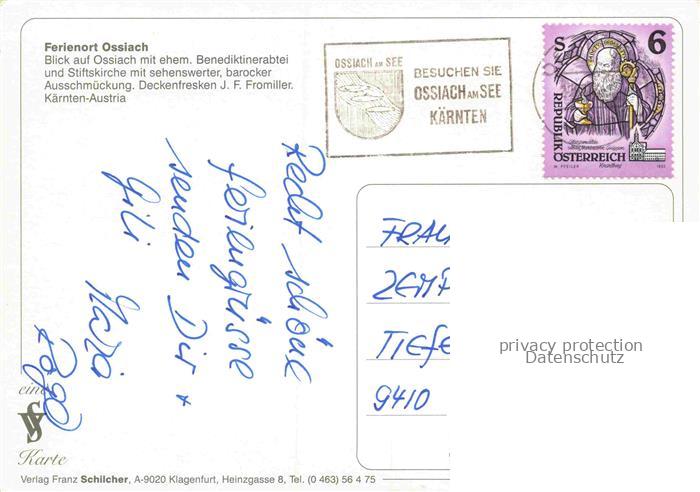 Ferienort Ossiach
Blick auf Ossiach mit ehem. Benediktinerabtei
und Stiftskirche mit sehenswerter, barocker
Ausschmückung. Deckenfresken J. F. Fromiller.
Kärnten-Austria
OSSIACH AM SEE
BESUCHEN SIE
OSSIACH AM SEE
KÄRNTEN
S 6
REPUBLIK
ÖSTERREICH
Recht schöne
Feriengrüsse
senden Dir
Gili
FRAU
TIEFE
9410
privacy protection
Datenschutz
eine
Karte
Verlag Franz Schilcher, A-9020 Klagenfurt, Heinzgasse 8, Tel. (0 463) 56 4 75